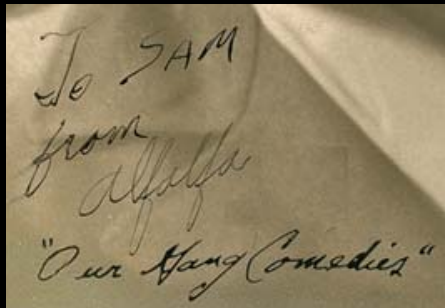 To SAM
from
alfalfa
"Our Gang Comedies"